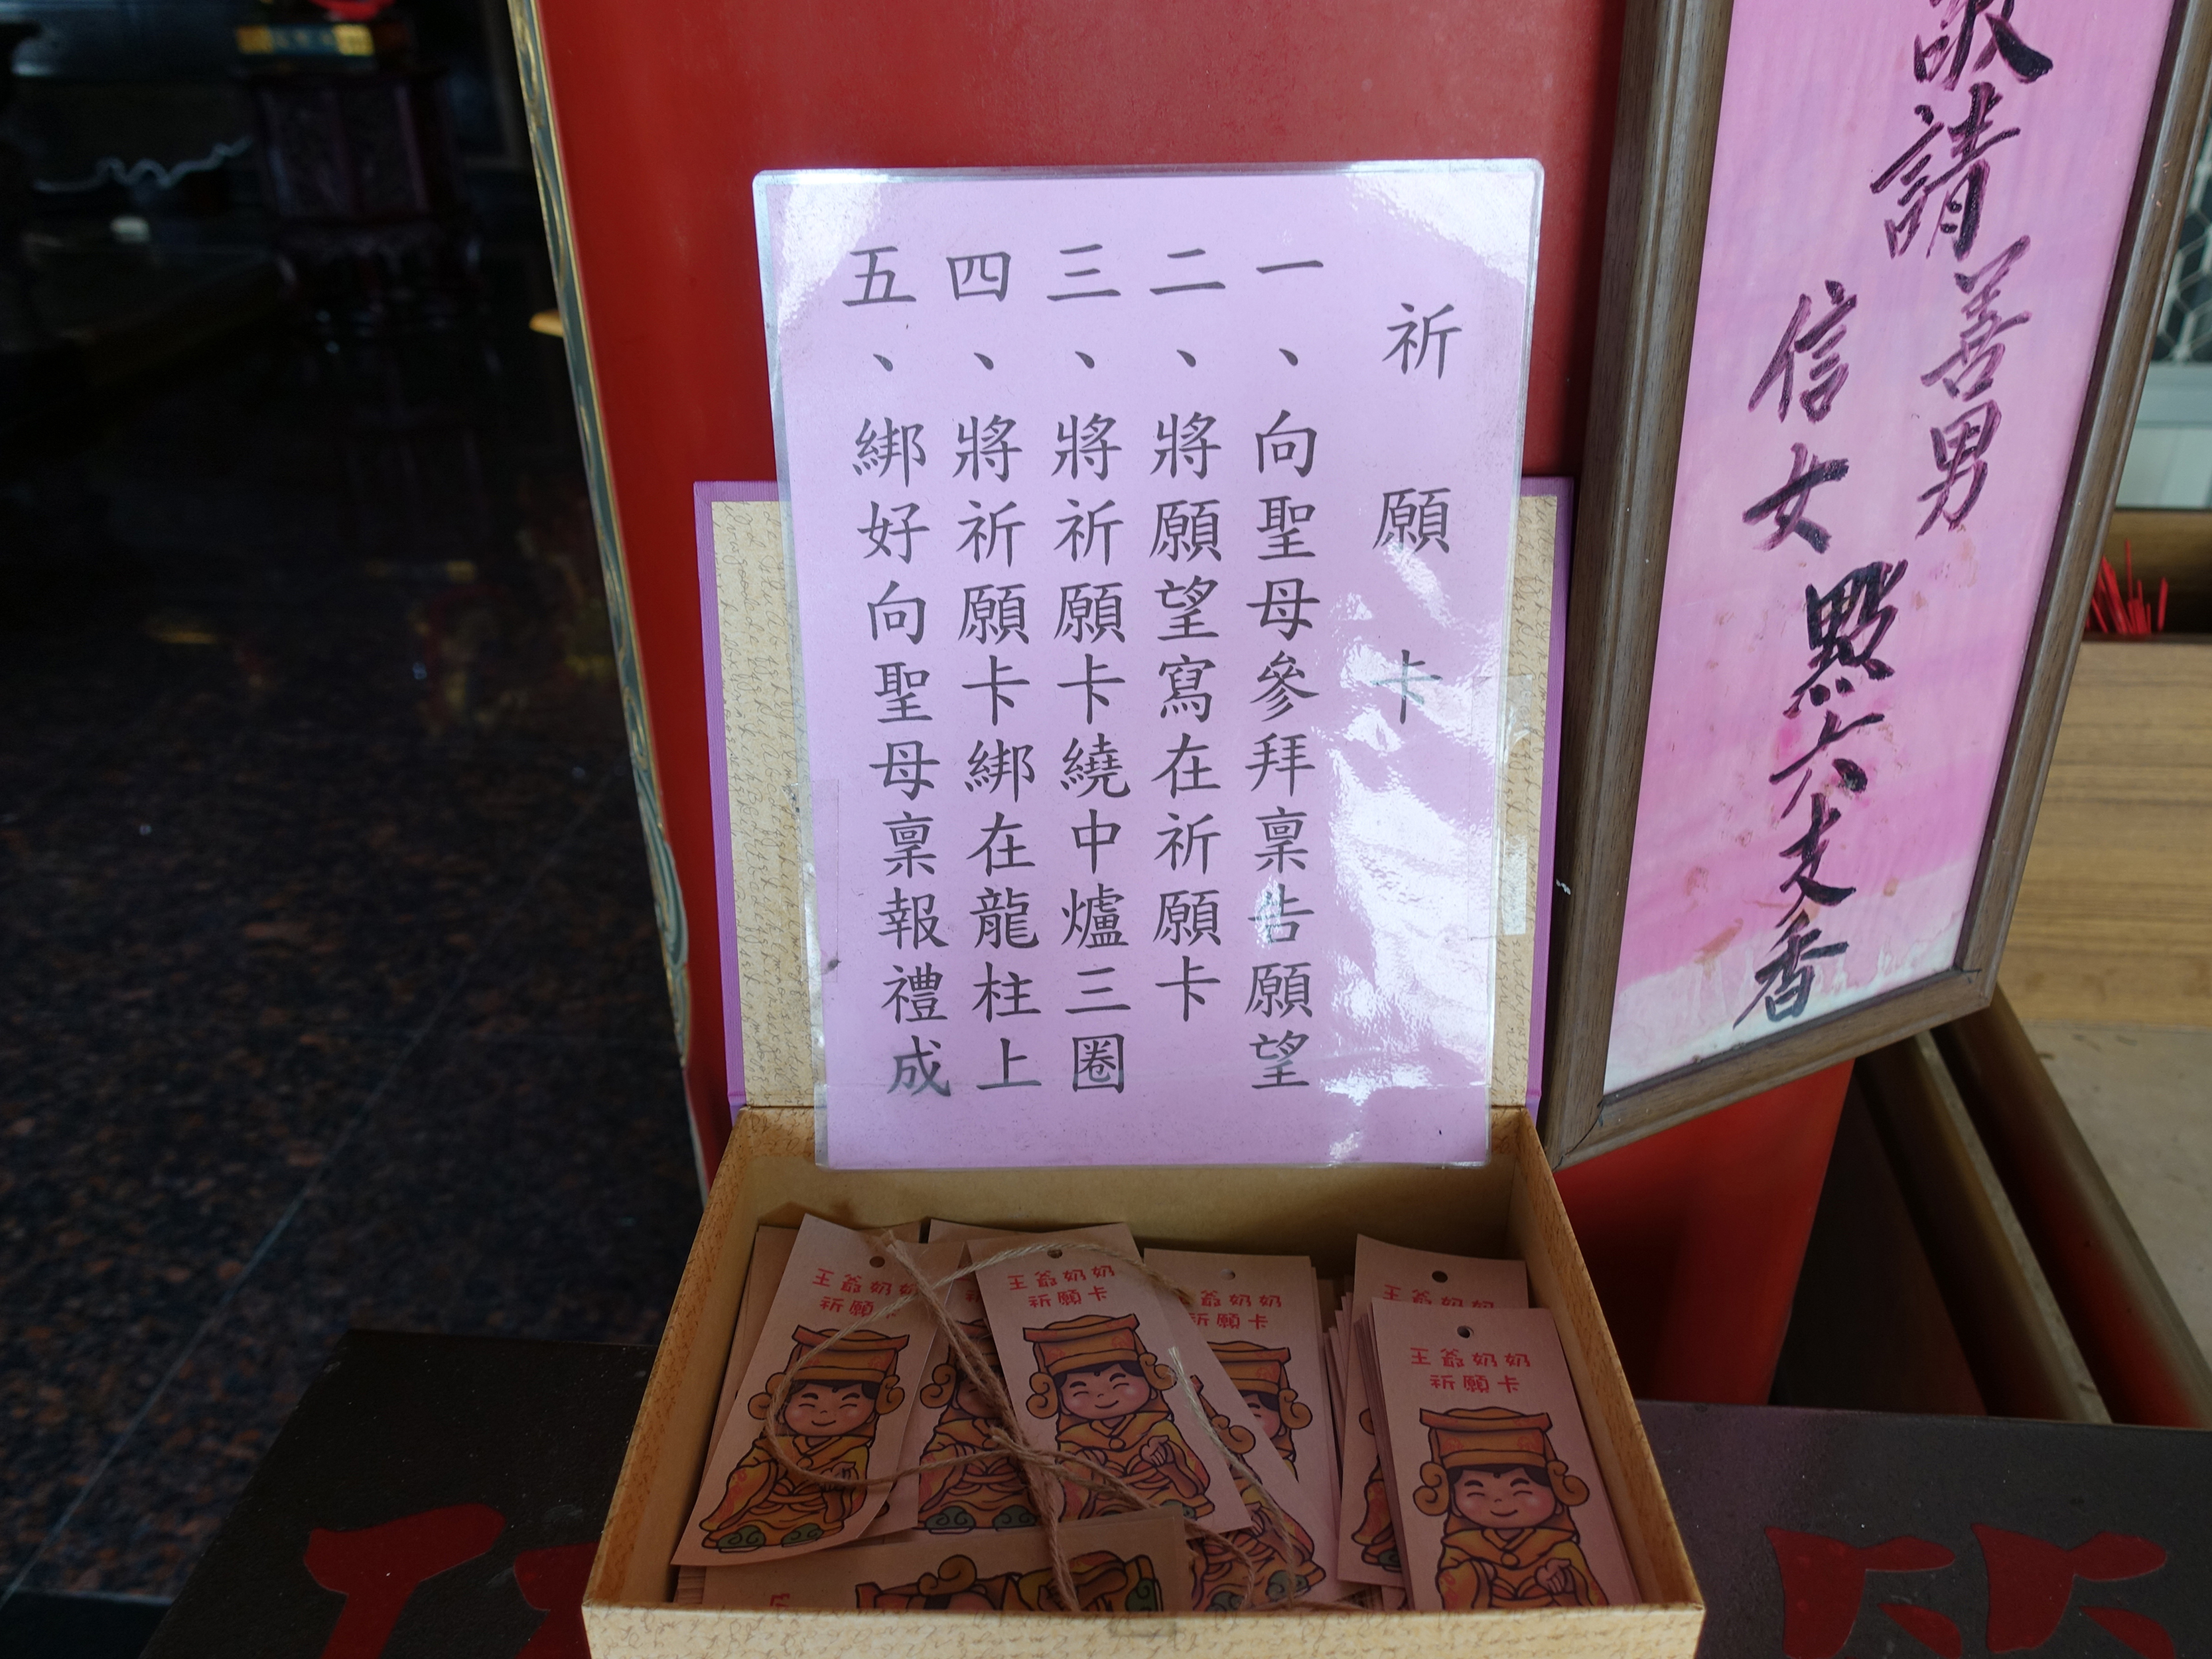 敬請善男
信女
點六支香
祈願卡
一、向聖母參拜稟告願望
二、將願望寫在祈願卡
三、將祈願卡繞中爐三圈
四、將祈願卡綁在龍柱上
五、綁好向聖母稟報禮成
王爺奶奶
祈願卡
王爺奶奶
祈願卡
爺奶奶
祈願卡
王爺奶奶
王爺奶奶
祈願卡